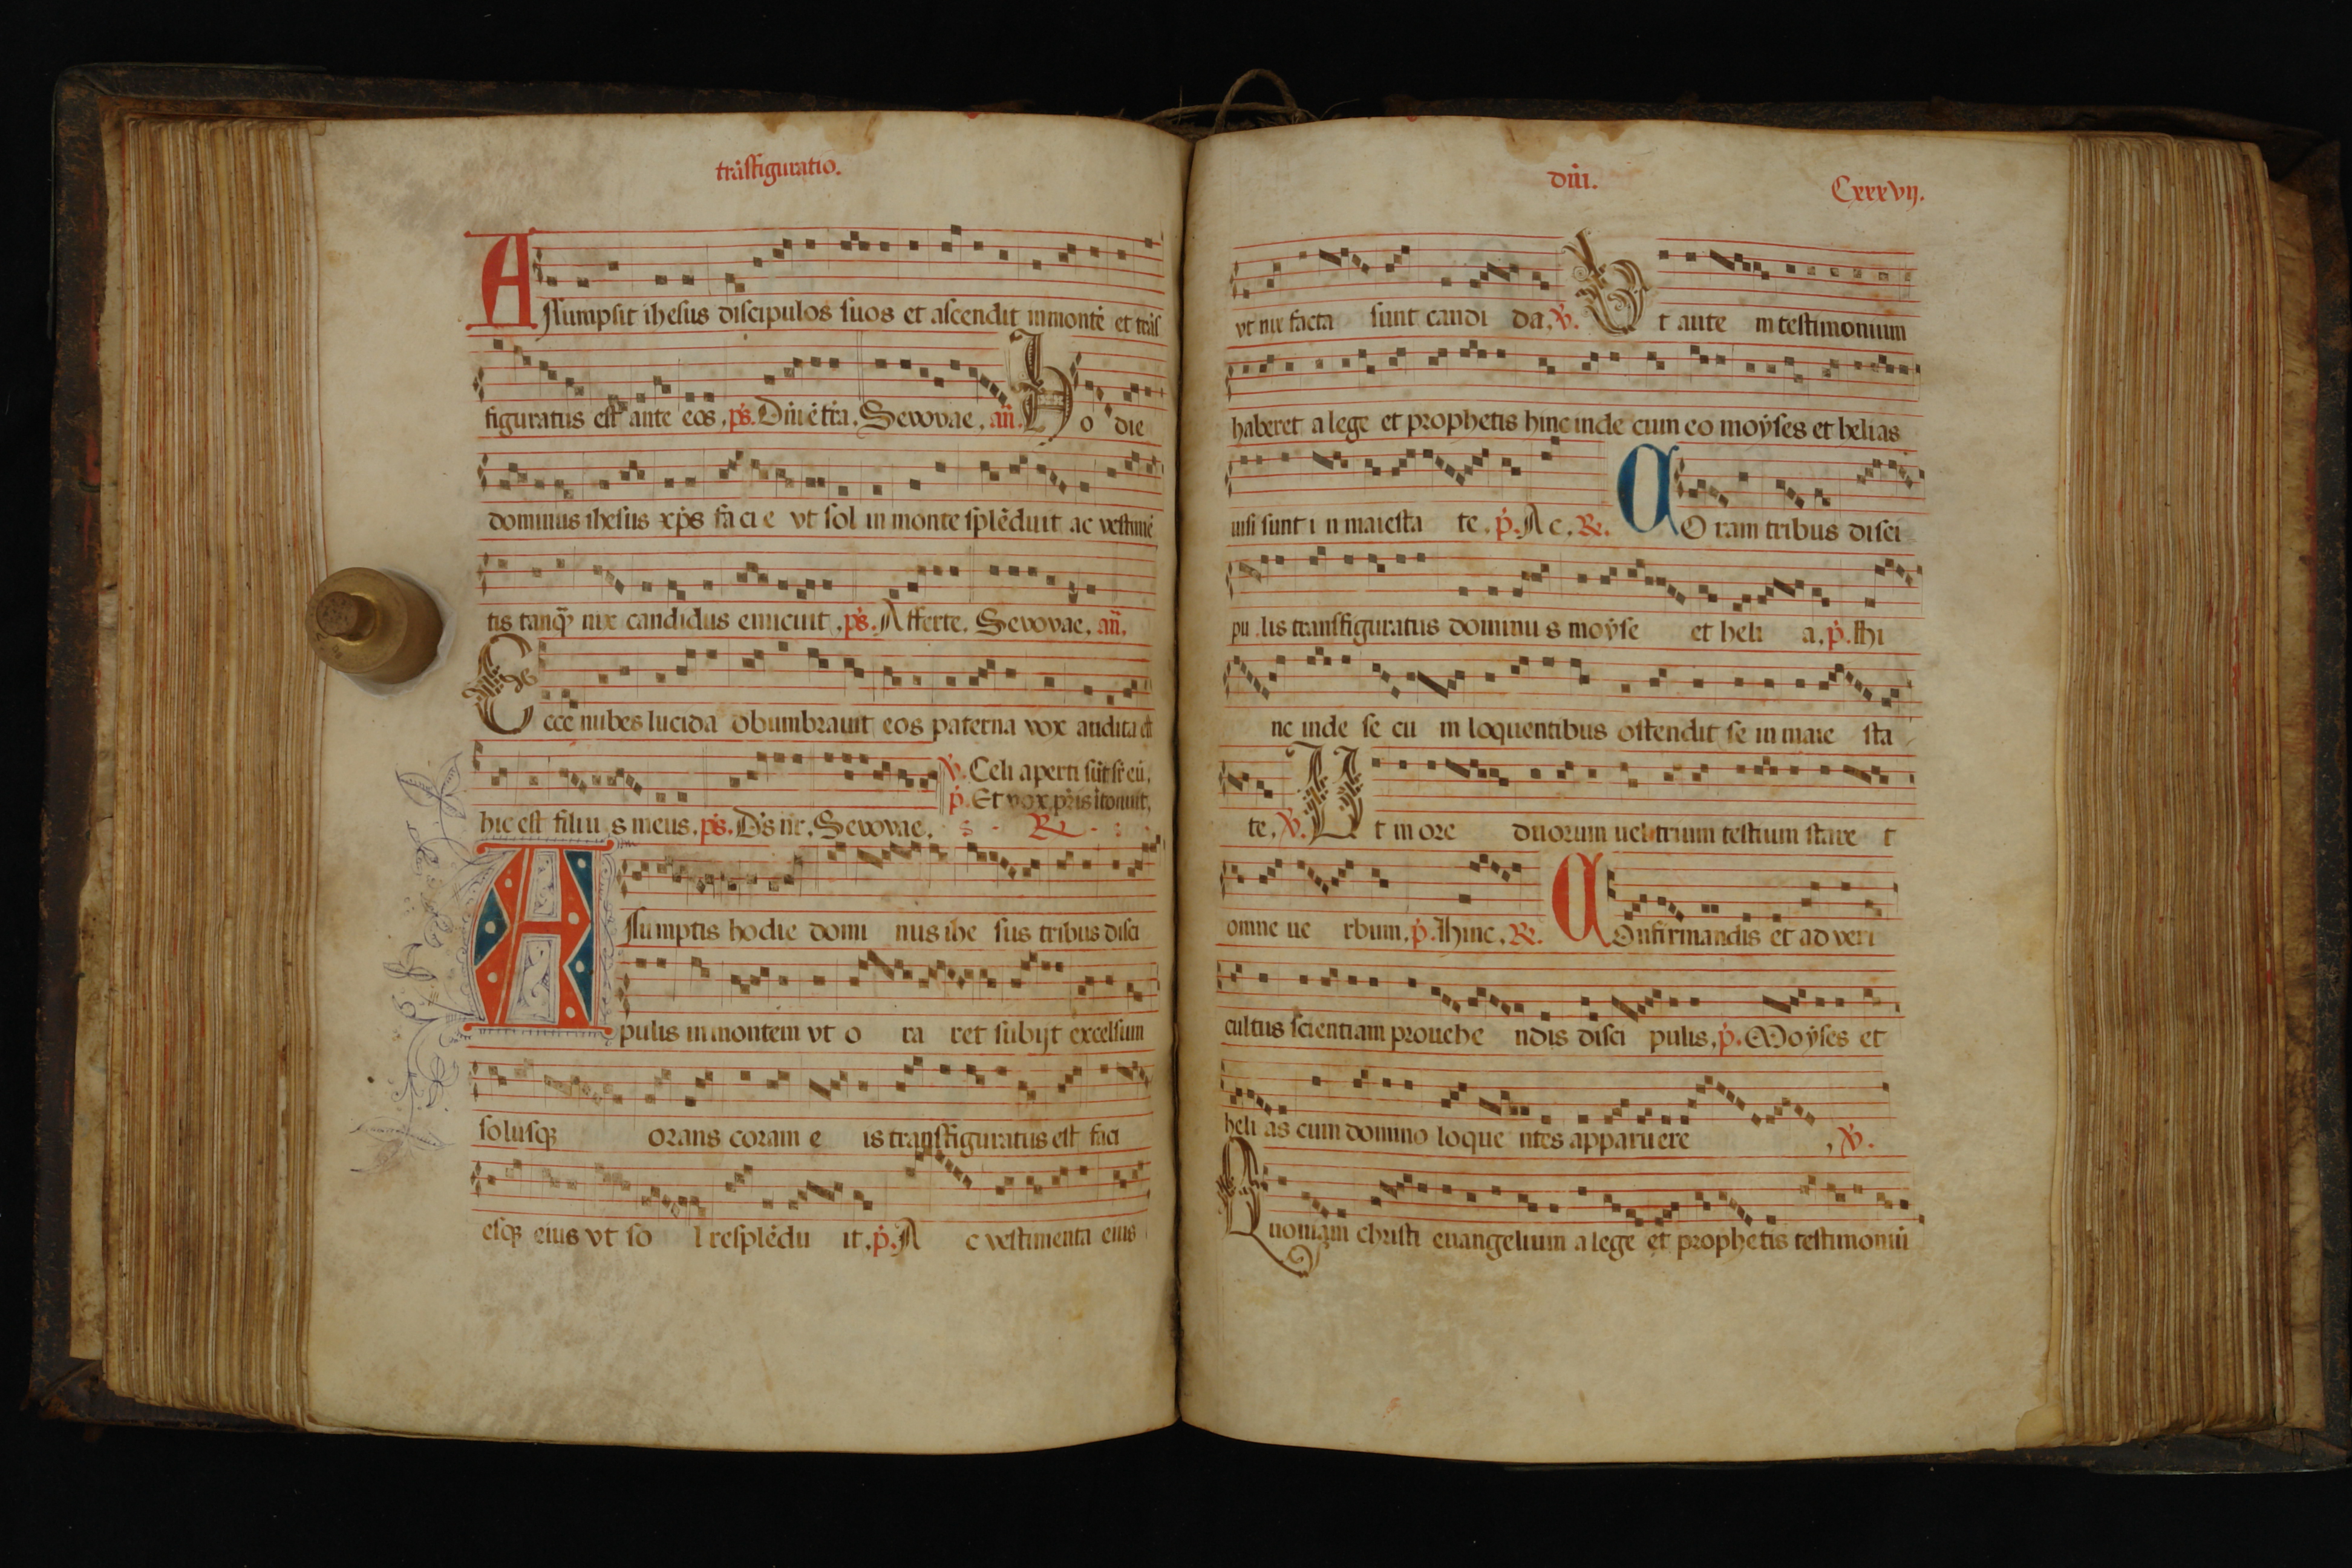 trãsfiguratio.
Assumpsit ihesus discipulos suos et ascendit in montē et trās
figuratus est ante eos. ps. Dñi ē trā. Seuouae. añ. Ho die
dominus ihesus xp̄s faci e vt sol in monte splēduit ac vestimē
tis tanq̄ nix candidus emicuit. ps. Afferte. Seuouae. añ.
Ecce nubes lucida obumbrauit eos paterna vox audita est
℣. Celi aperti sūt sr̄ eū.
p. Et vox pr̄is ītonuit.
hic est filiu s meus. ps. Ds nr. Seuouae. R̷.
Assumptis hodie domi nus ihe sus tribus disci
pulis in montem vt o ra ret subijt excelsum
solusq orans coram e is transfiguratus est faci
esq eius vt so l resplēdu it. p. A c vestimenta eius
dñi. Cxxxvij.
vt nix facta sunt candi da. ℣. Vt aute m testimonium
haberet a lege et prophetis hinc inde cum eo moyses et helias
uisi sunt i n maiesta te. p. Ac. R̷. CO ram tribus disci
pu lis transfiguratus dominu s moyse et heli a. p. Hi
nc inde se cu m loquentibus ostendit se in maie sta
te. ℣. Ut in ore duorum uel trium testium stare t
omne ue rbum. p. Hinc. R̷. COnfirmandis et ad veri
cultus scientiam prouehe ndis disci pulis. p. Moyses et
heli as cum domino loque ntes apparuere . ℣.
Quoniam christi euangelium a lege et prophetis testimoniū